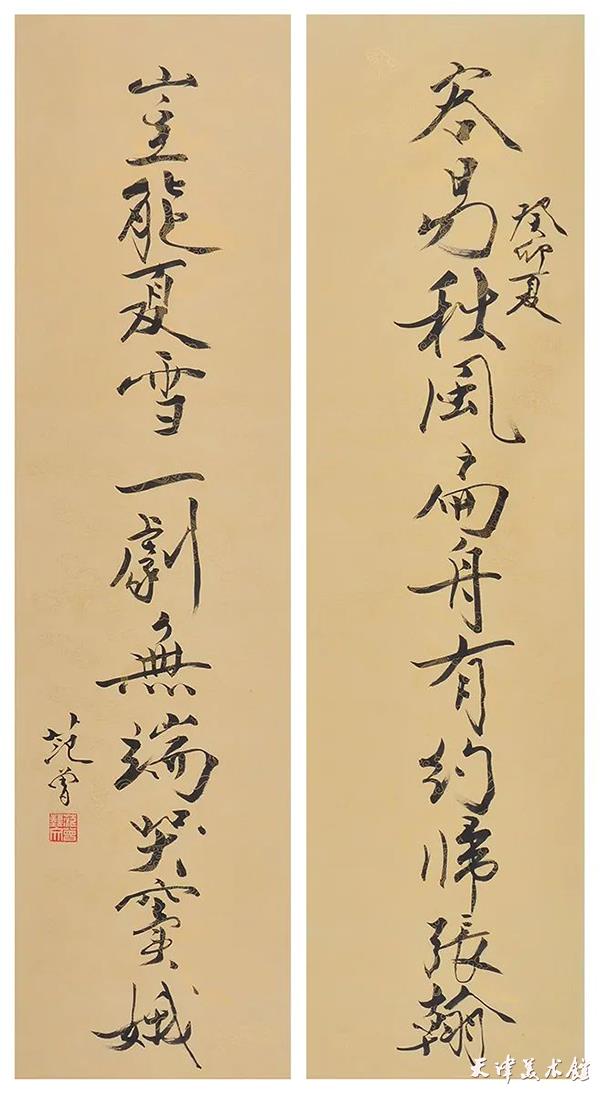 容易秋風扁舟有約帰張翰
癸卯夏
豈能夏雪一劇無端哭竇娥
范曾
天津美術館